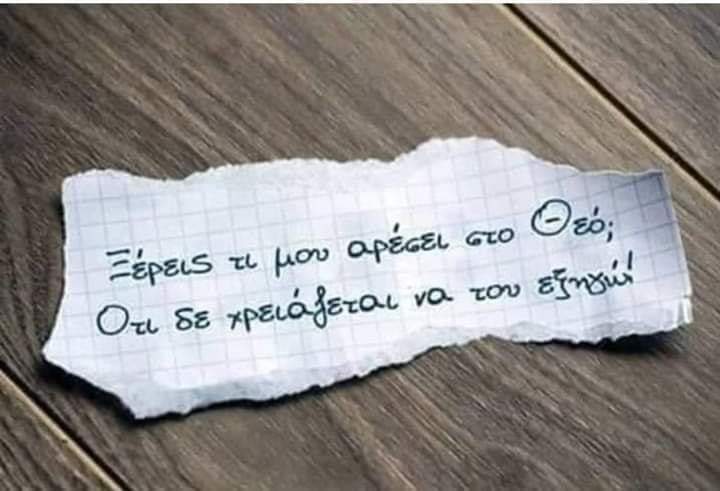 Ξέρεις τι μου αρέσει στο Θεό;
Οτι δε χρειάζεται να του εξηγώ!